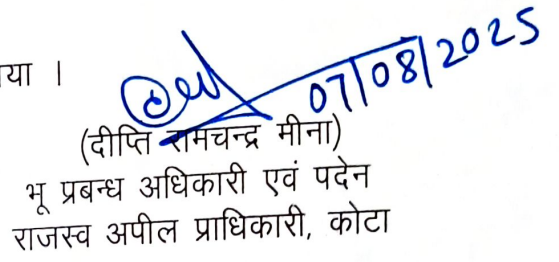 या ।
07/08/2025
(दीप्ति रामचन्द्र मीना)
भू प्रबन्ध अधिकारी एवं पदेन
राजस्व अपील प्राधिकारी, कोटा